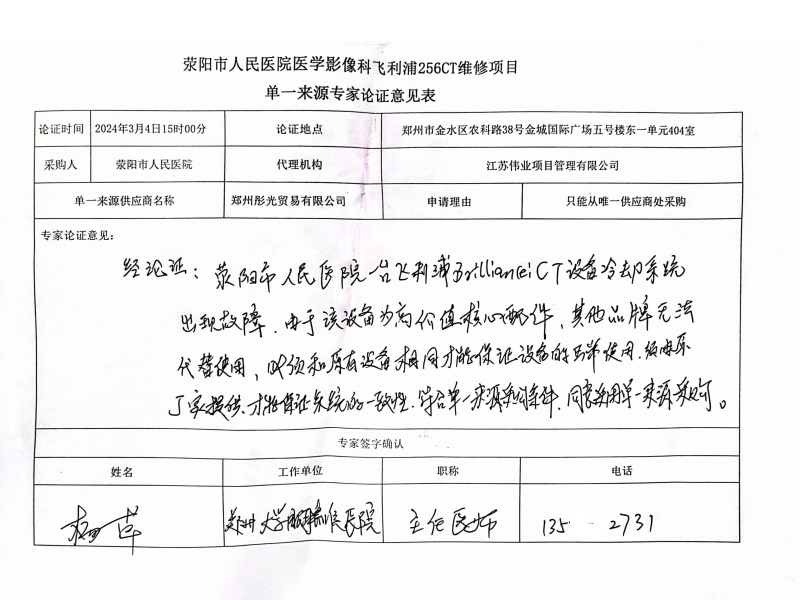 荥阳市人民医院医学影像科飞利浦256CT维修项目
单一来源专家论证意见表
论证时间 2024年3月4日15时00分 论证地点 郑州市金水区农科路38号金城国际广场五号楼东一单元404室
采购人 荥阳市人民医院 代理机构 江苏伟业项目管理有限公司
单一来源供应商名称 郑州彤光贸易有限公司 申请理由 只能从唯一供应商处采购
专家论证意见：
经论证：荥阳市人民医院一台飞利浦 CT设备冷却系统
出现故障，由于该设备为高价值核心配件，其他品牌无法
代替使用，必须和原有设备相同才能保证设备的正常使用，须由原
厂家提供，才能保证系统的一致性，符合单一来源采购条件，同意采用单一来源采购。
专家签字确认
姓名 工作单位 职称 电话
杨 郑州大学附属 医院 主任医师 135 2731